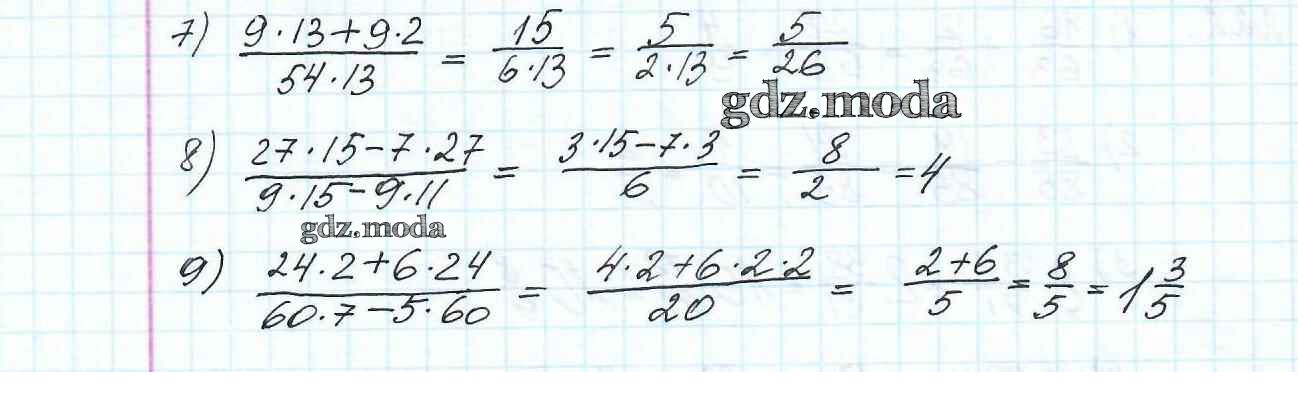 7) (9·13+9·2)/(54·13) = 15/(6·13) = 5/(2·13) = 5/26
gdz.moda
8) (27·15−7·27)/(9·15−9·11) = (3·15−7·3)/6 = 8/2 = 4
gdz.moda
9) (24·2+6·24)/(60·7−5·60) = (4·2+6·2·2)/20 = (2+6)/5 = 8/5 = 1 3/5